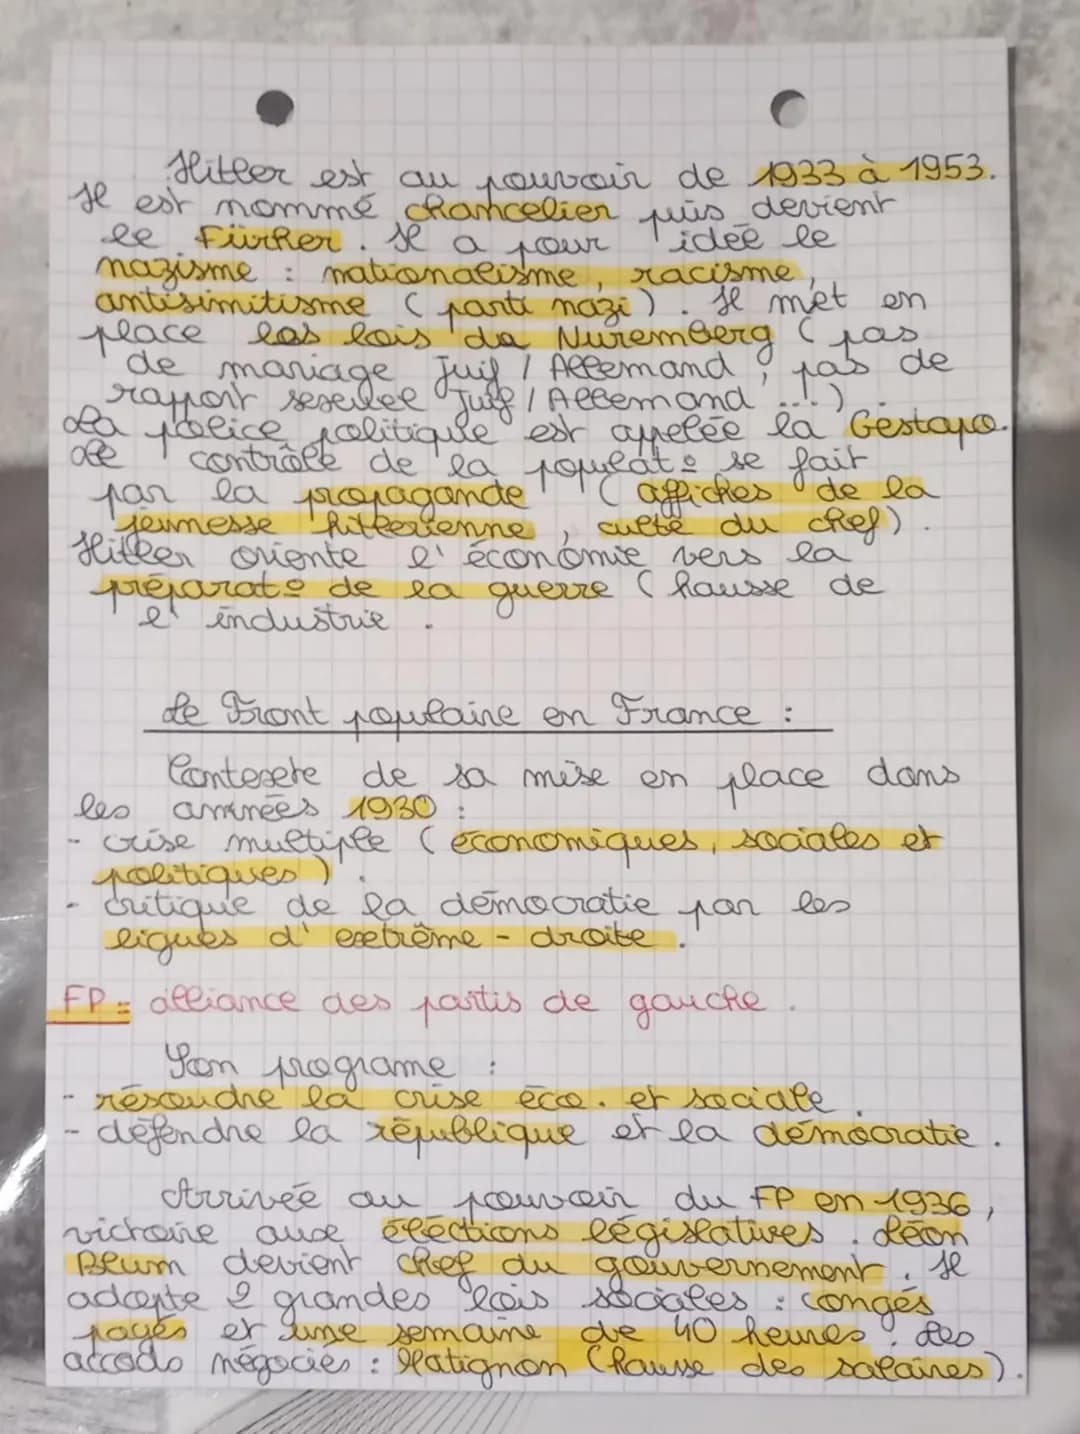 Hitler est au pouvoir de 1933 à 1953.
Il est nommé chancelier puis devient
le Fürher. Il a pour idée le
nazisme : nationalisme, racisme,
antisimitisme (parti nazi). Il met en
place les lois de Nuremberg (pas
de mariage Juif / Allemand, pas de
rapport sexuel Juif / Allemand ...).
La police politique est appelée la Gestapo.
Le contrôle de la populat° se fait
par la propagande (affiches de la
jeunesse hitlerienne, culte du chef).
Hitler oriente l'économie vers la
préparat° de la guerre (hausse de
l'industrie.
Le Front populaire en France :
Contexte de sa mise en place dans
les années 1930 :
- crise multiple (économiques, sociales et
politiques).
- critique de la démocratie par les
ligues d'extrême-droite.
FP = alliance des partis de gauche.
Son programe :
- résoudre la crise éco. et sociale.
- défendre la république et la démocratie.
Arrivée au pouvoir du FP en 1936,
victoire aux éléctions législatives. Léon
Blum devient chef du gouvernement. Il
adopte 2 grandes lois sociales : congés
payés et une semaine de 40 heures. Les
accods négociés : Matignon (hausse des salaires).